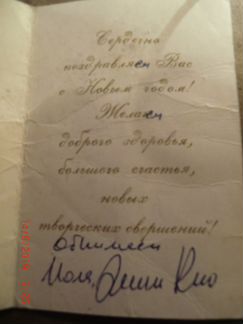 Сердечно
поздравляем Вас
с Новым годом!
Желаем
доброго здоровья,
большого счастья,
новых
творческих свершений!
Обнимаем
Кио